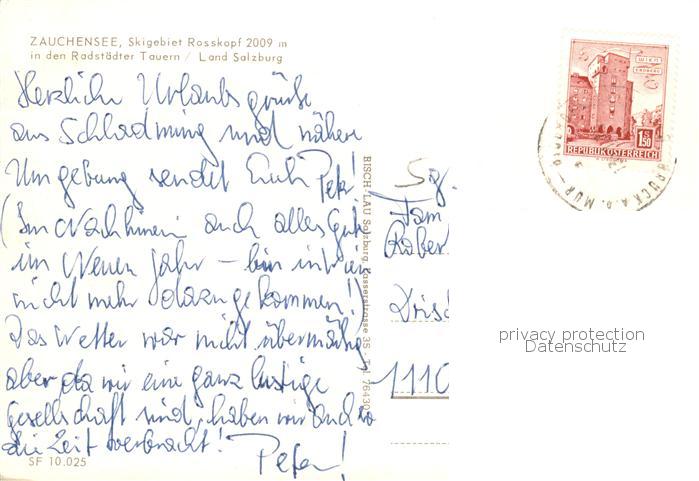 ZAUCHENSEE, Skigebiet Rosskopf 2009 m
in den Radstädter Tauern / Land Salzburg
Herzliche Urlaubsgrüße
aus Schladming und nähere
Umgebung sendet Euch Peter!
(Im Nachhinein auch alles Gute
im Neuen Jahr – bin
nicht mehr dazugekommen!)
Das Wetter war nicht übermäßig
aber da wir eine ganz lustige
Gesellschaft sind, haben wir auch so
die Zeit verbracht!
Peter!
SF 10.025
BUSCH, LAU Salzburg,
35 - Tel. 76430
Fam
Robert
1110
WIEN
ERDBERG
1.50
REPUBLIK ÖSTERREICH
BRUCK A. D. MUR
privacy protection
Datenschutz